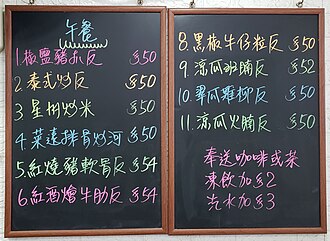 午餐
1.椒鹽豬扒反 $50
2.泰式炒反 $50
3.星州炒米 $50
4.菜遠排骨炒河 $50
5.紅燒豬軟骨反 $54
6.紅酒燴牛肋反 $54
8.黑椒牛仔粒反 $50
9.涼瓜班腩反 $52
10.翠瓜雞柳反 $50
11.涼瓜火腩反 $50
奉送咖啡或茶
東飲加$2
汽水加$3